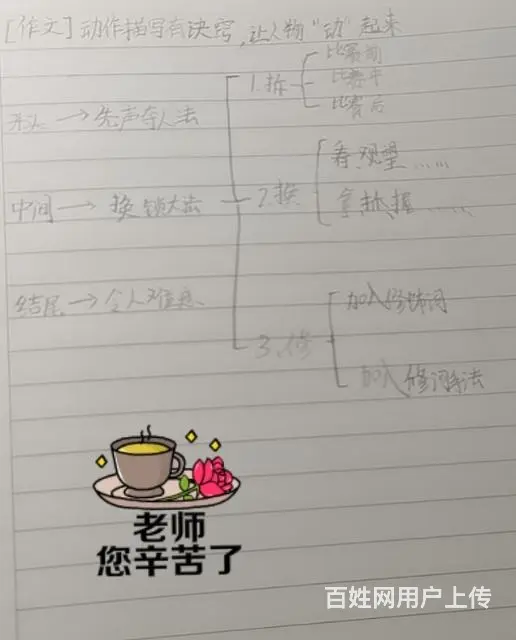 [作文]动作描写有诀窍,让人物“动”起来
开头→先声夺人法
中间→换锁大法
结尾→令人难忘
1.拆
比赛前
比赛中
比赛后
2.换
看.观望……
拿.抓.握……
3.修
加入修饰词
加入修词手法
老师
您辛苦了
百姓网用户上传